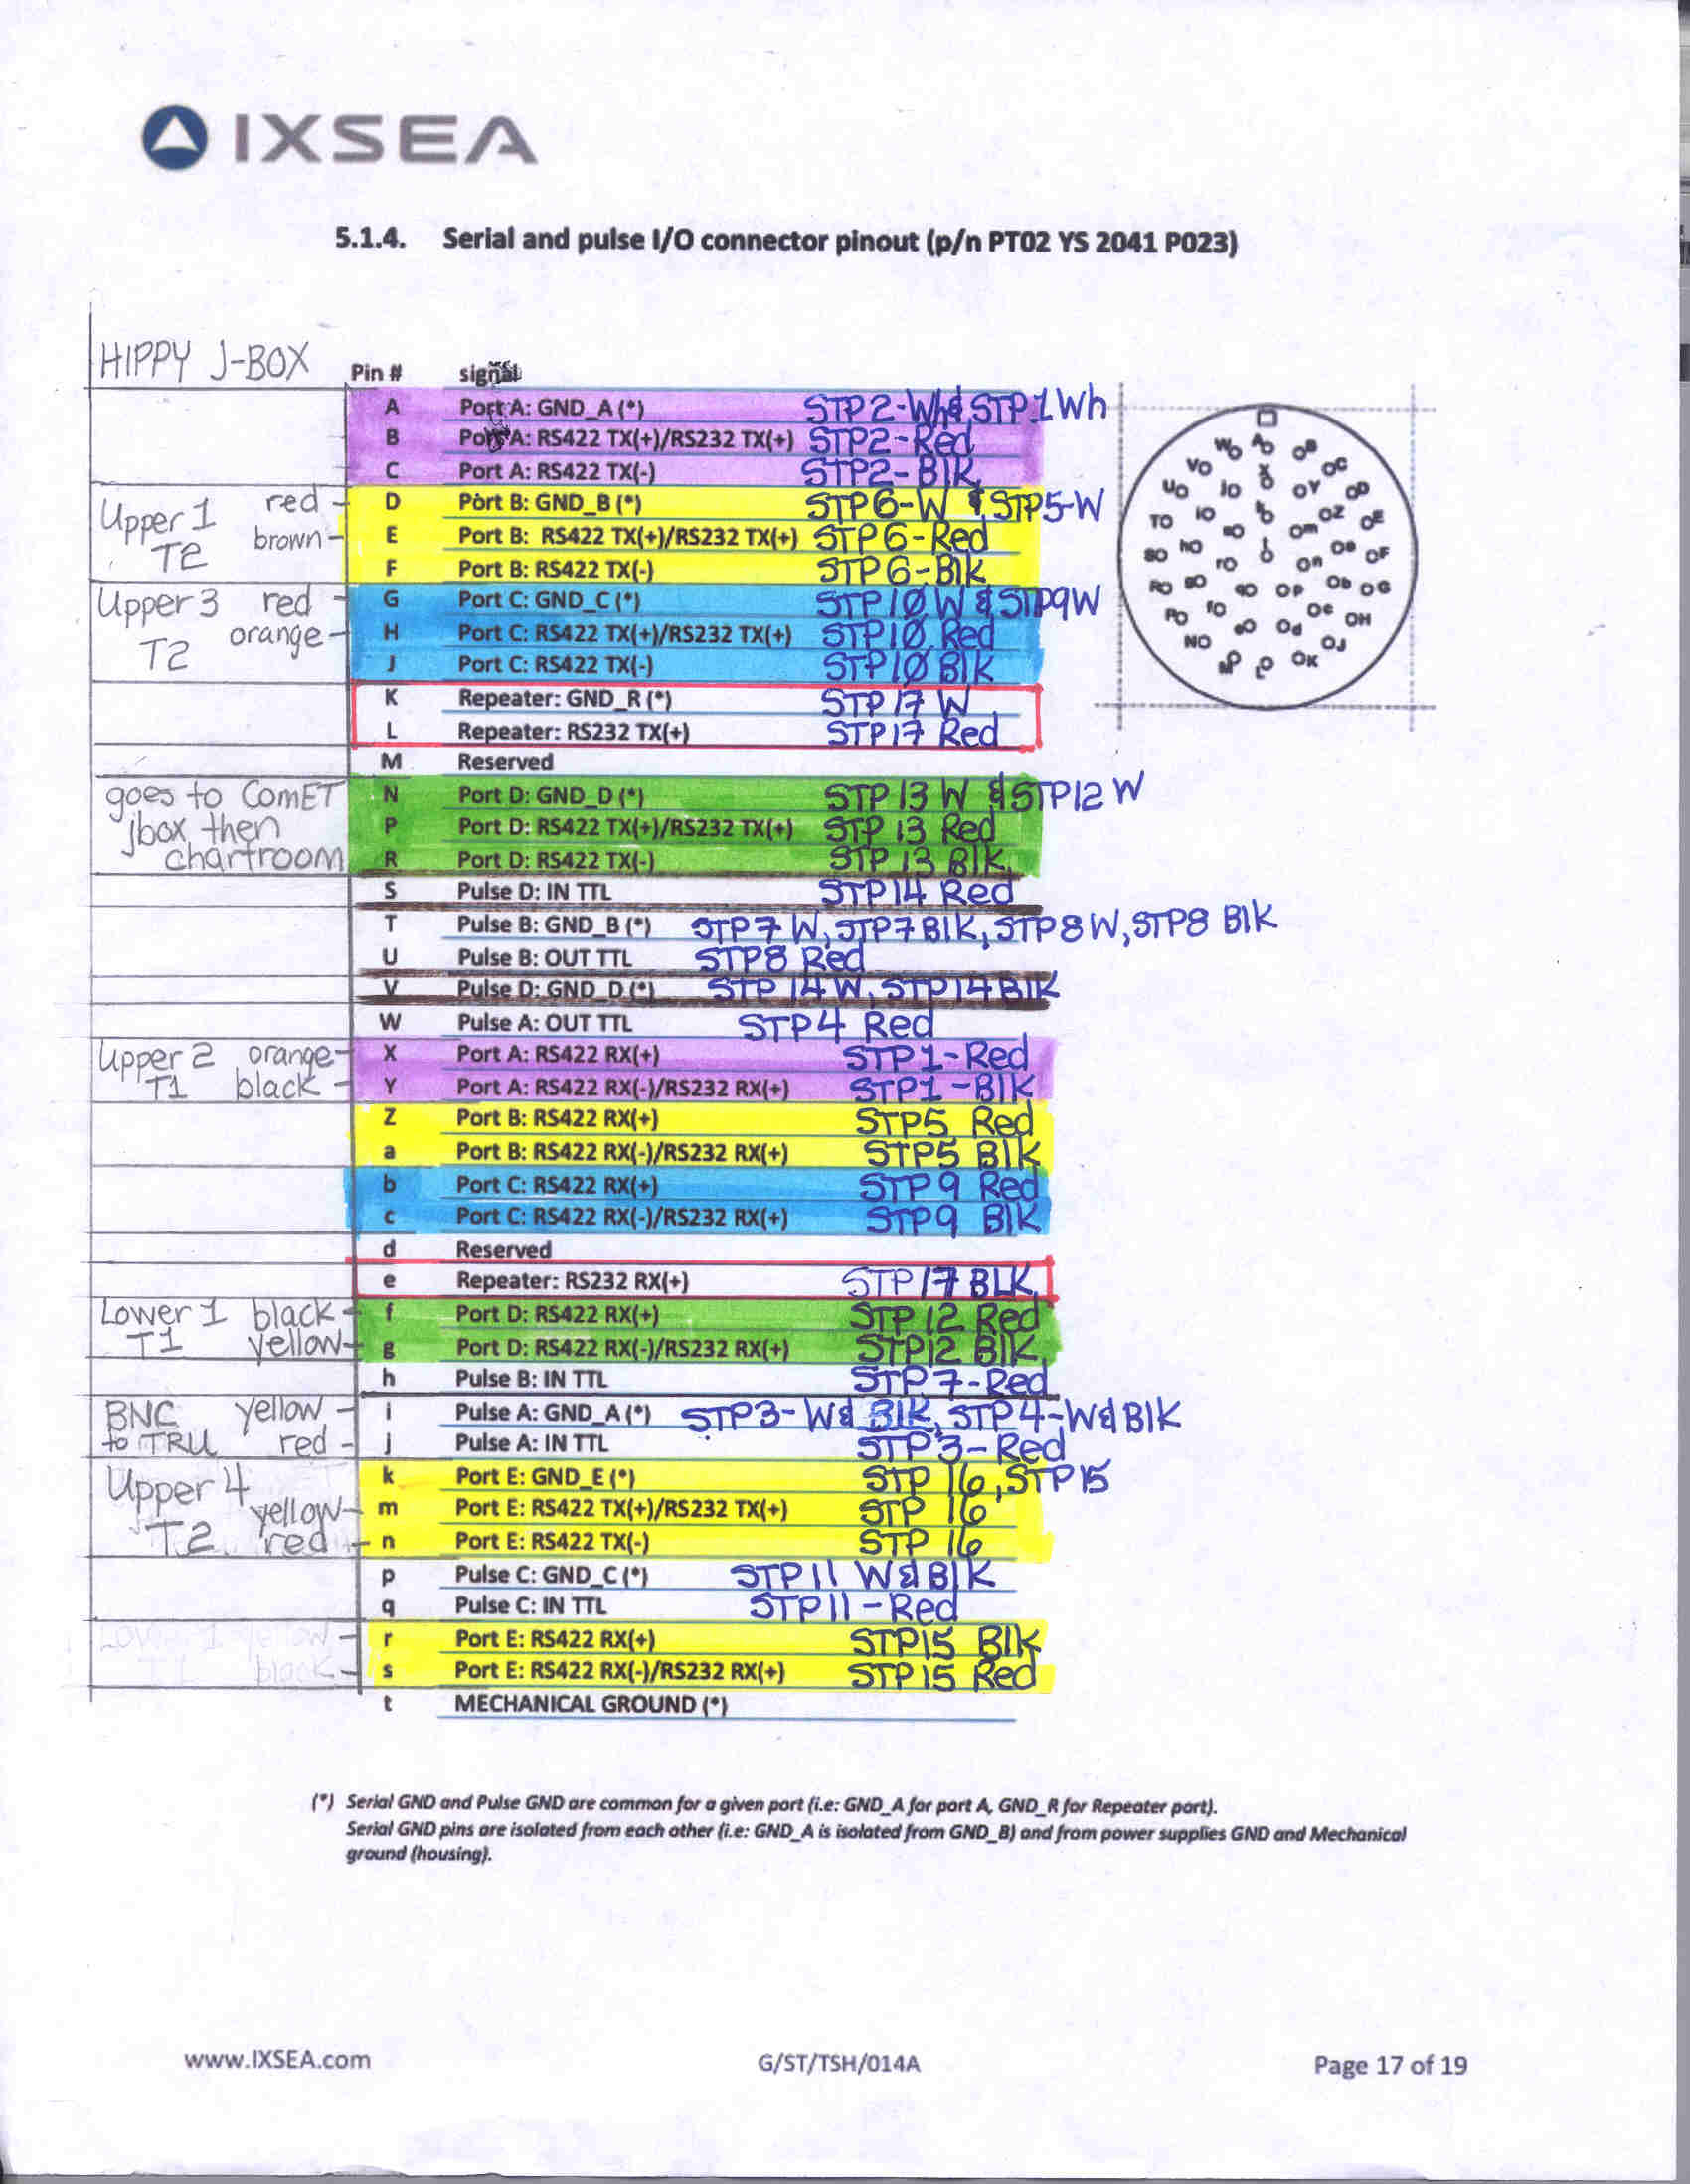 IXSEA
5.1.4. Serial and pulse I/O connector pinout (p/n PT02 YS 2041 P023)
HIPPY J-BOX Pin # signal
A Port A: GND_A (*) STP2-Wh & STP1Wh
B Port A: RS422 TX(+)/RS232 TX(+) STP2-Red
C Port A: RS422 TX(-) STP2-Blk
Upper 1 red - D Port B: GND_B (*) STP6-W & STP5-W
T2 brown - E Port B: RS422 TX(+)/RS232 TX(+) STP6-Red
F Port B: RS422 TX(-) STP6-Blk
Upper 3 red - G Port C: GND_C (*) STP10 W & STP9W
T2 orange - H Port C: RS422 TX(+)/RS232 TX(+) STP10 Red
J Port C: RS422 TX(-) STP10 Blk
K Repeater: GND_R (*) STP 17 W
L Repeater: RS232 TX(+) STP17 Red
M Reserved
goes to ComET N Port D: GND_D (*) STP 13 W & STP12 W
jbox then P Port D: RS422 TX(+)/RS232 TX(+) STP 13 Red
chartroom R Port D: RS422 TX(-) STP 13 Blk
S Pulse D: IN TTL STP14 Red
T Pulse B: GND_B (*) STP7 W, STP7 Blk, STP8W, STP8 Blk
U Pulse B: OUT TTL STP8 Red
V Pulse D: GND_D (*) STP 14W, STP14 Blk
W Pulse A: OUT TTL STP4 Red
Upper 2 orange - X Port A: RS422 RX(+) STP1-Red
T1 black - Y Port A: RS422 RX(-)/RS232 RX(+) STP1-Blk
Z Port B: RS422 RX(+) STP5 Red
a Port B: RS422 RX(-)/RS232 RX(+) STP5 Blk
b Port C: RS422 RX(+) STP 9 Red
c Port C: RS422 RX(-)/RS232 RX(+) STP9 Blk
d Reserved
e Repeater: RS232 RX(+) STP 17 BLK
Lower 1 black - f Port D: RS422 RX(+) STP 12 Red
T1 yellow - g Port D: RS422 RX(-)/RS232 RX(+) STP12 Blk
h Pulse B: IN TTL STP7-Red
BNC yellow - i Pulse A: GND_A (*) STP3-W& Blk, STP4-W&Blk
to TRU red - j Pulse A: IN TTL STP3-Red
Upper 4 k Port E: GND_E (*) STP 16, STP15
yellow - m Port E: RS422 TX(+)/RS232 TX(+) STP 16
T2 red - n Port E: RS422 TX(-) STP 16
p Pulse C: GND_C (*) STP11 W&Blk
q Pulse C: IN TTL STP11-Red
Lower 1 yellow - r Port E: RS422 RX(+) STP15 Blk
T1 black - s Port E: RS422 RX(-)/RS232 RX(+) STP15 Red
t MECHANICAL GROUND (*)
(*) Serial GND and Pulse GND are common for a given port (i.e: GND_A for port A, GND_R for Repeater port).
Serial GND pins are isolated from each other (i.e: GND_A is isolated from GND_B) and from power supplies GND and Mechanical
ground (housing).
www.IXSEA.com G/ST/TSH/014A Page 17 of 19